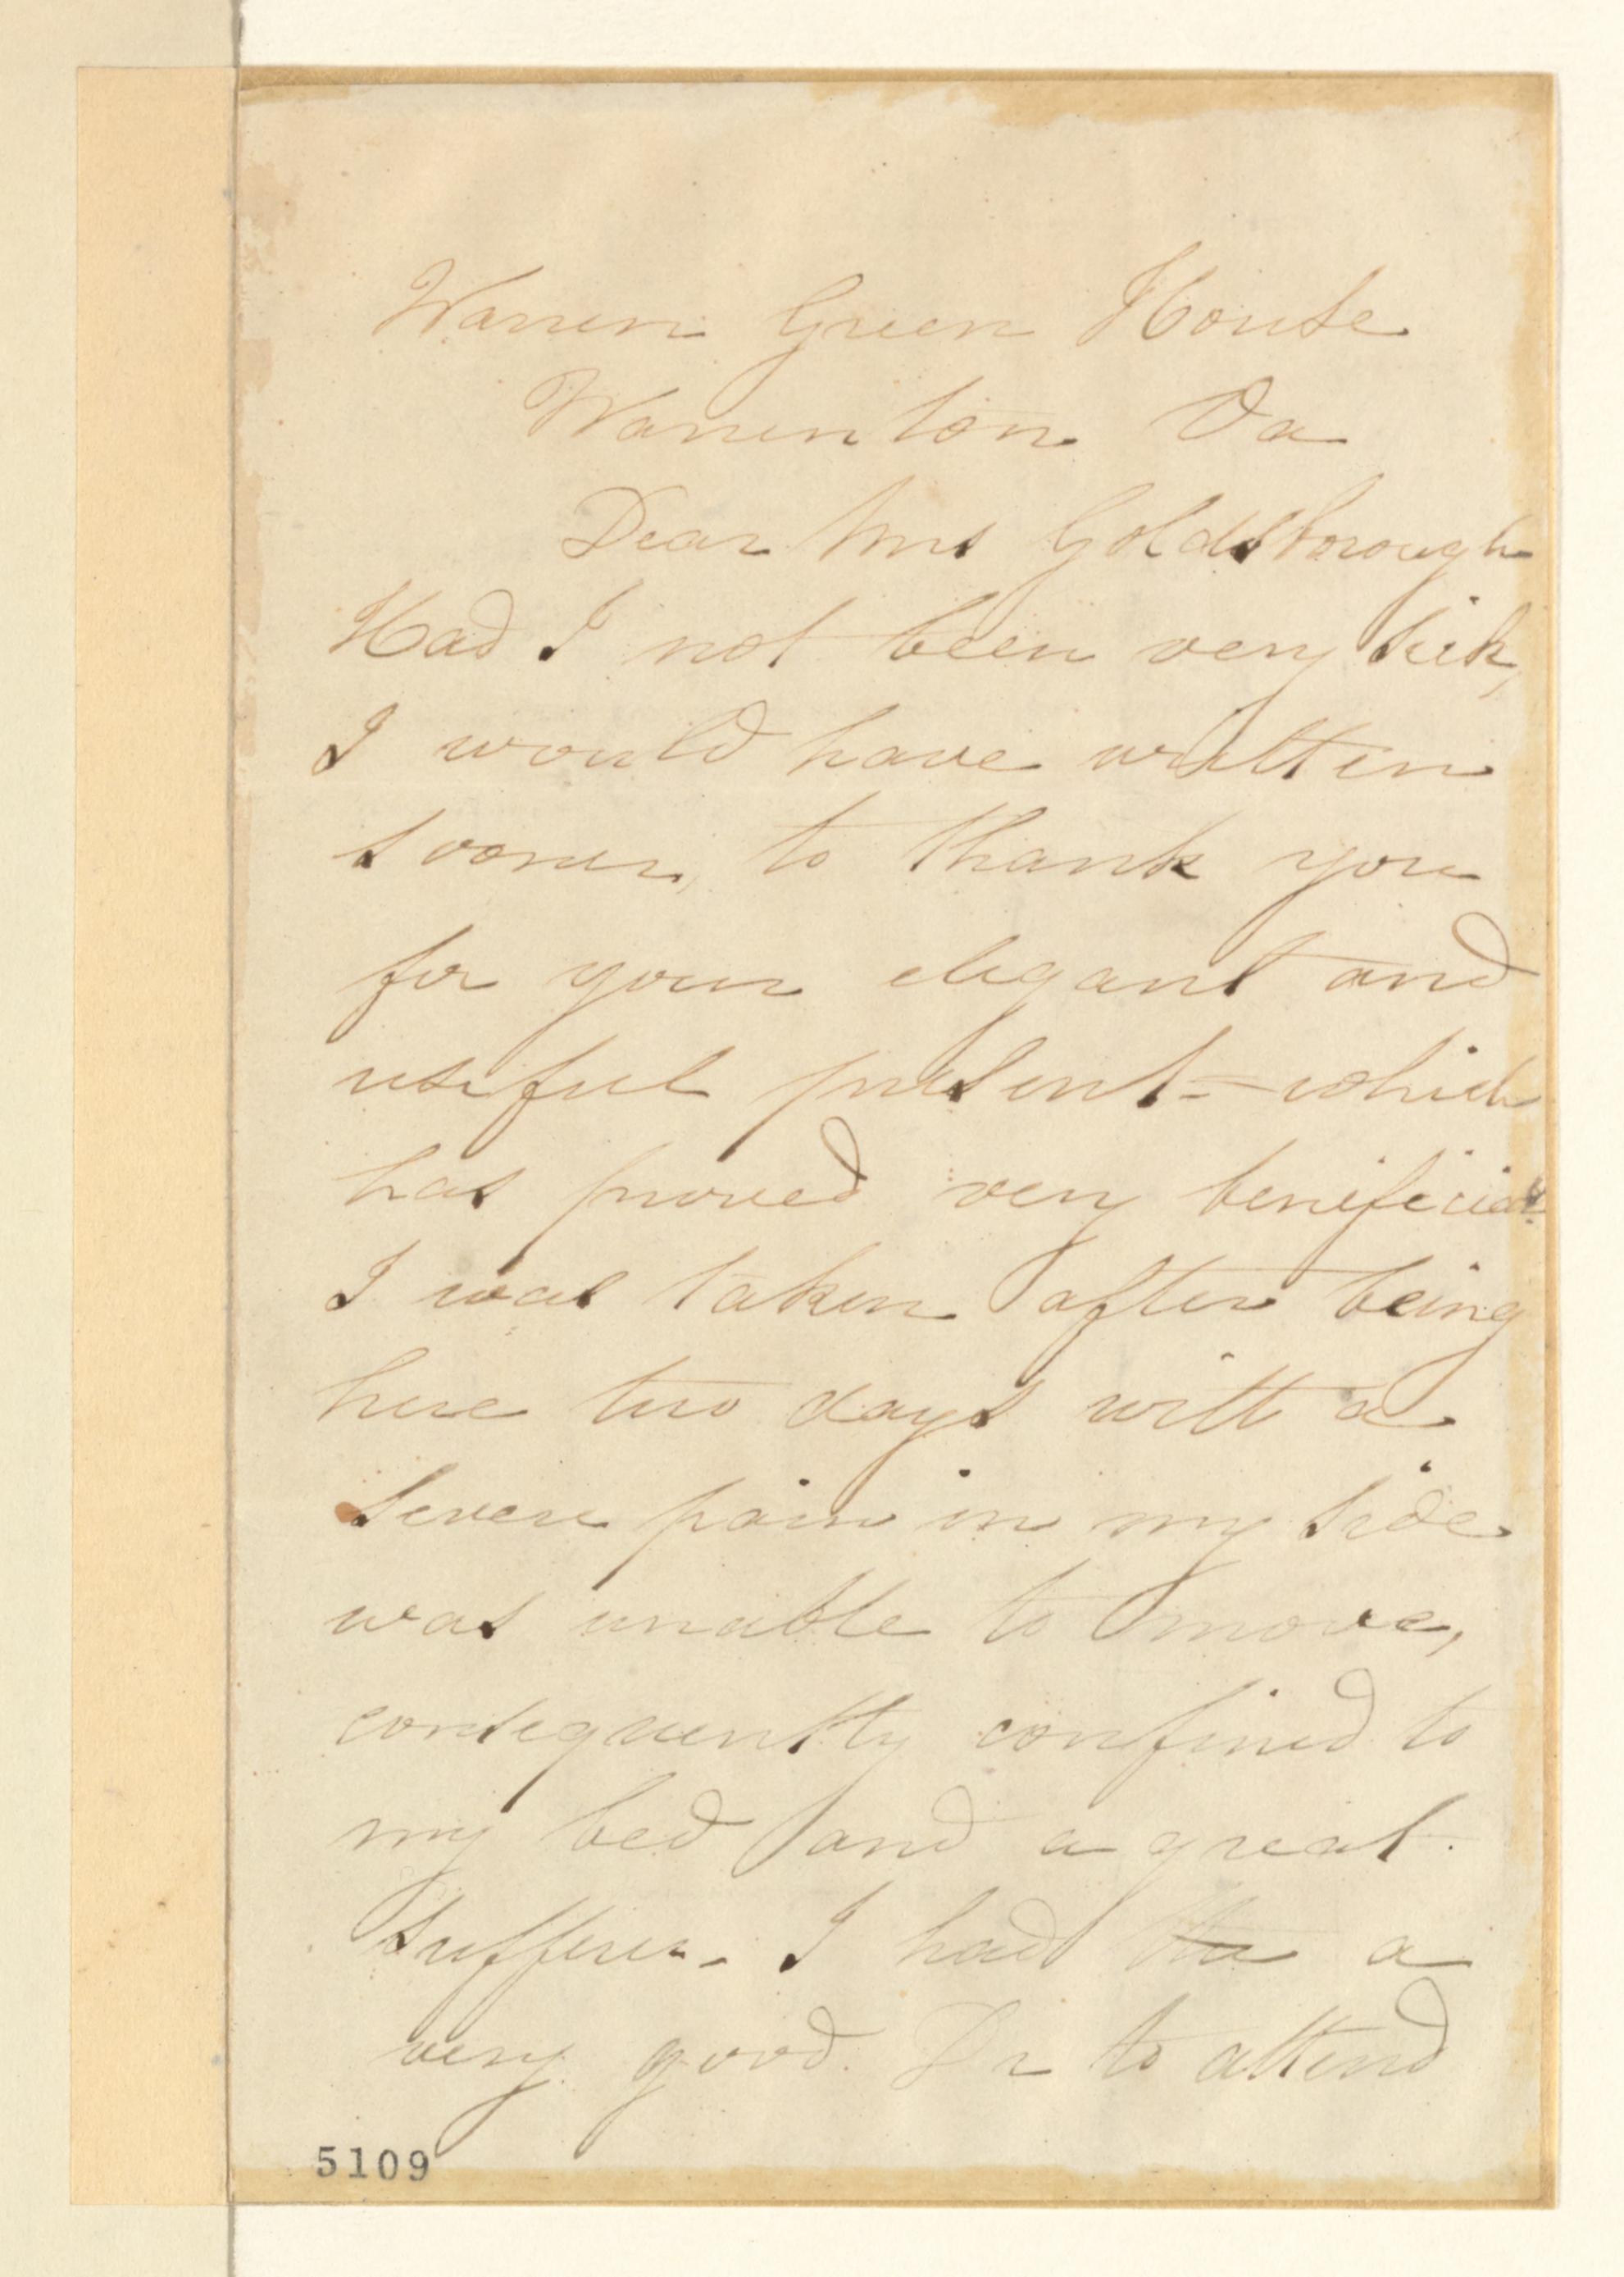 Warren Green House
Warrenton Va
Dear Mrs Goldsborough
Had I not been very sick,
I would have written
sooner, to thank you
for your elegant and
useful present = which
has proved very benificial.
I was taken after being
here two days with a
severe pain in my side
was unable to move,
consequently confined to
my bed and a great
sufferer - I had a
very good Dr to attend
5109